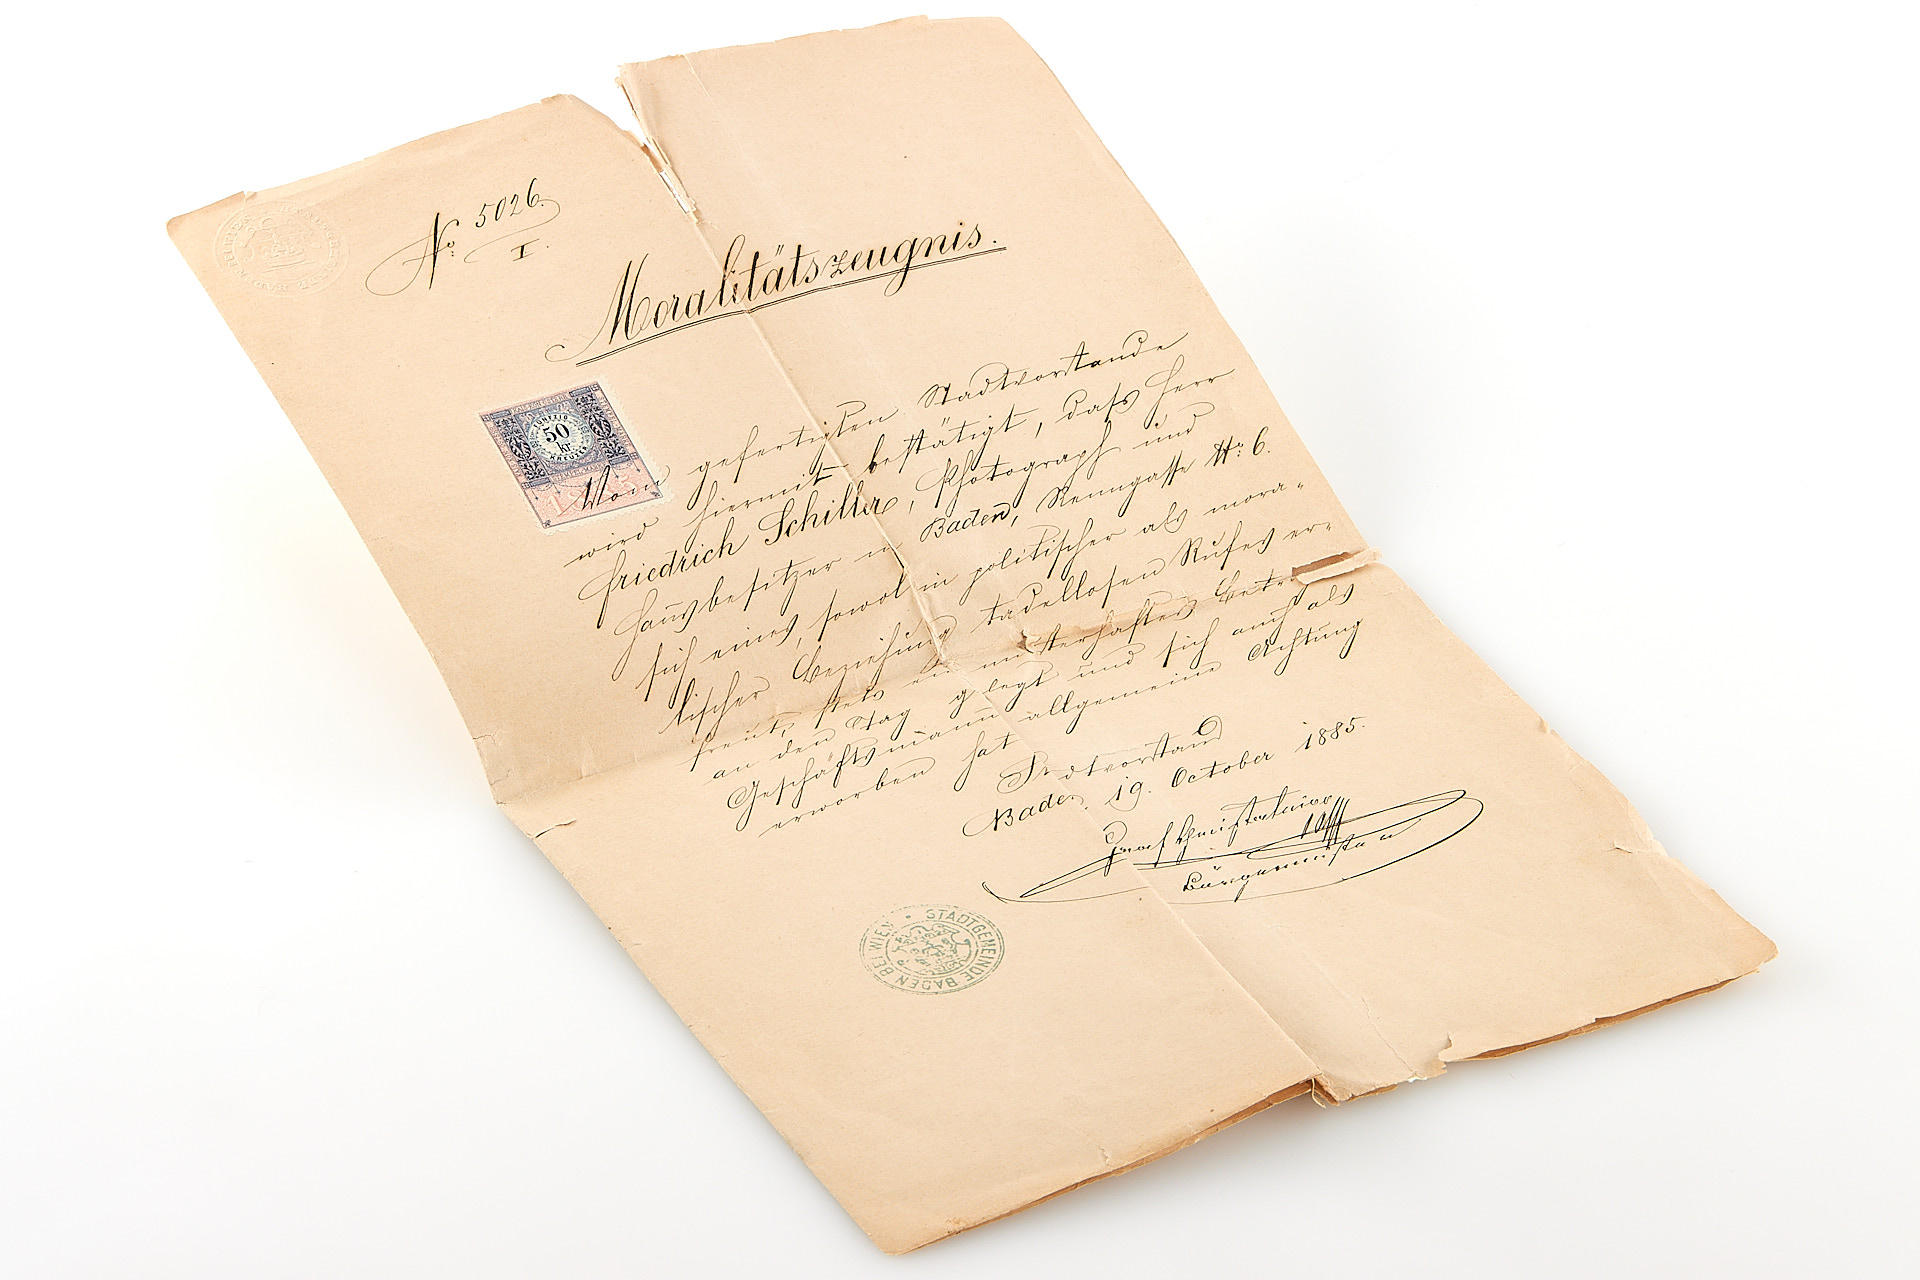 No. 5026.
I.
Moralitätszeugnis.
50
kr
FÜNFZIG
KREUZER
Vom gefertigten Stadtvorstande
wird hiermit bestätigt, dass Herr
Friedrich Schiller, Photograph und
Hausbesitzer in Baden, Renngasse No. 6.
sich eines, sowol in politischer als mora-
lischer Beziehung tadellosen Rufes er-
freut, stets ein musterhaftes
an den Tag gelegt und sich auch als
Geschäftsmann allgemeine Achtung
erworben hat
Stadtvorstand
Baden, 19. October 1885.
Bürgermeister
STADTGEMEINDE BADEN BEI WIEN